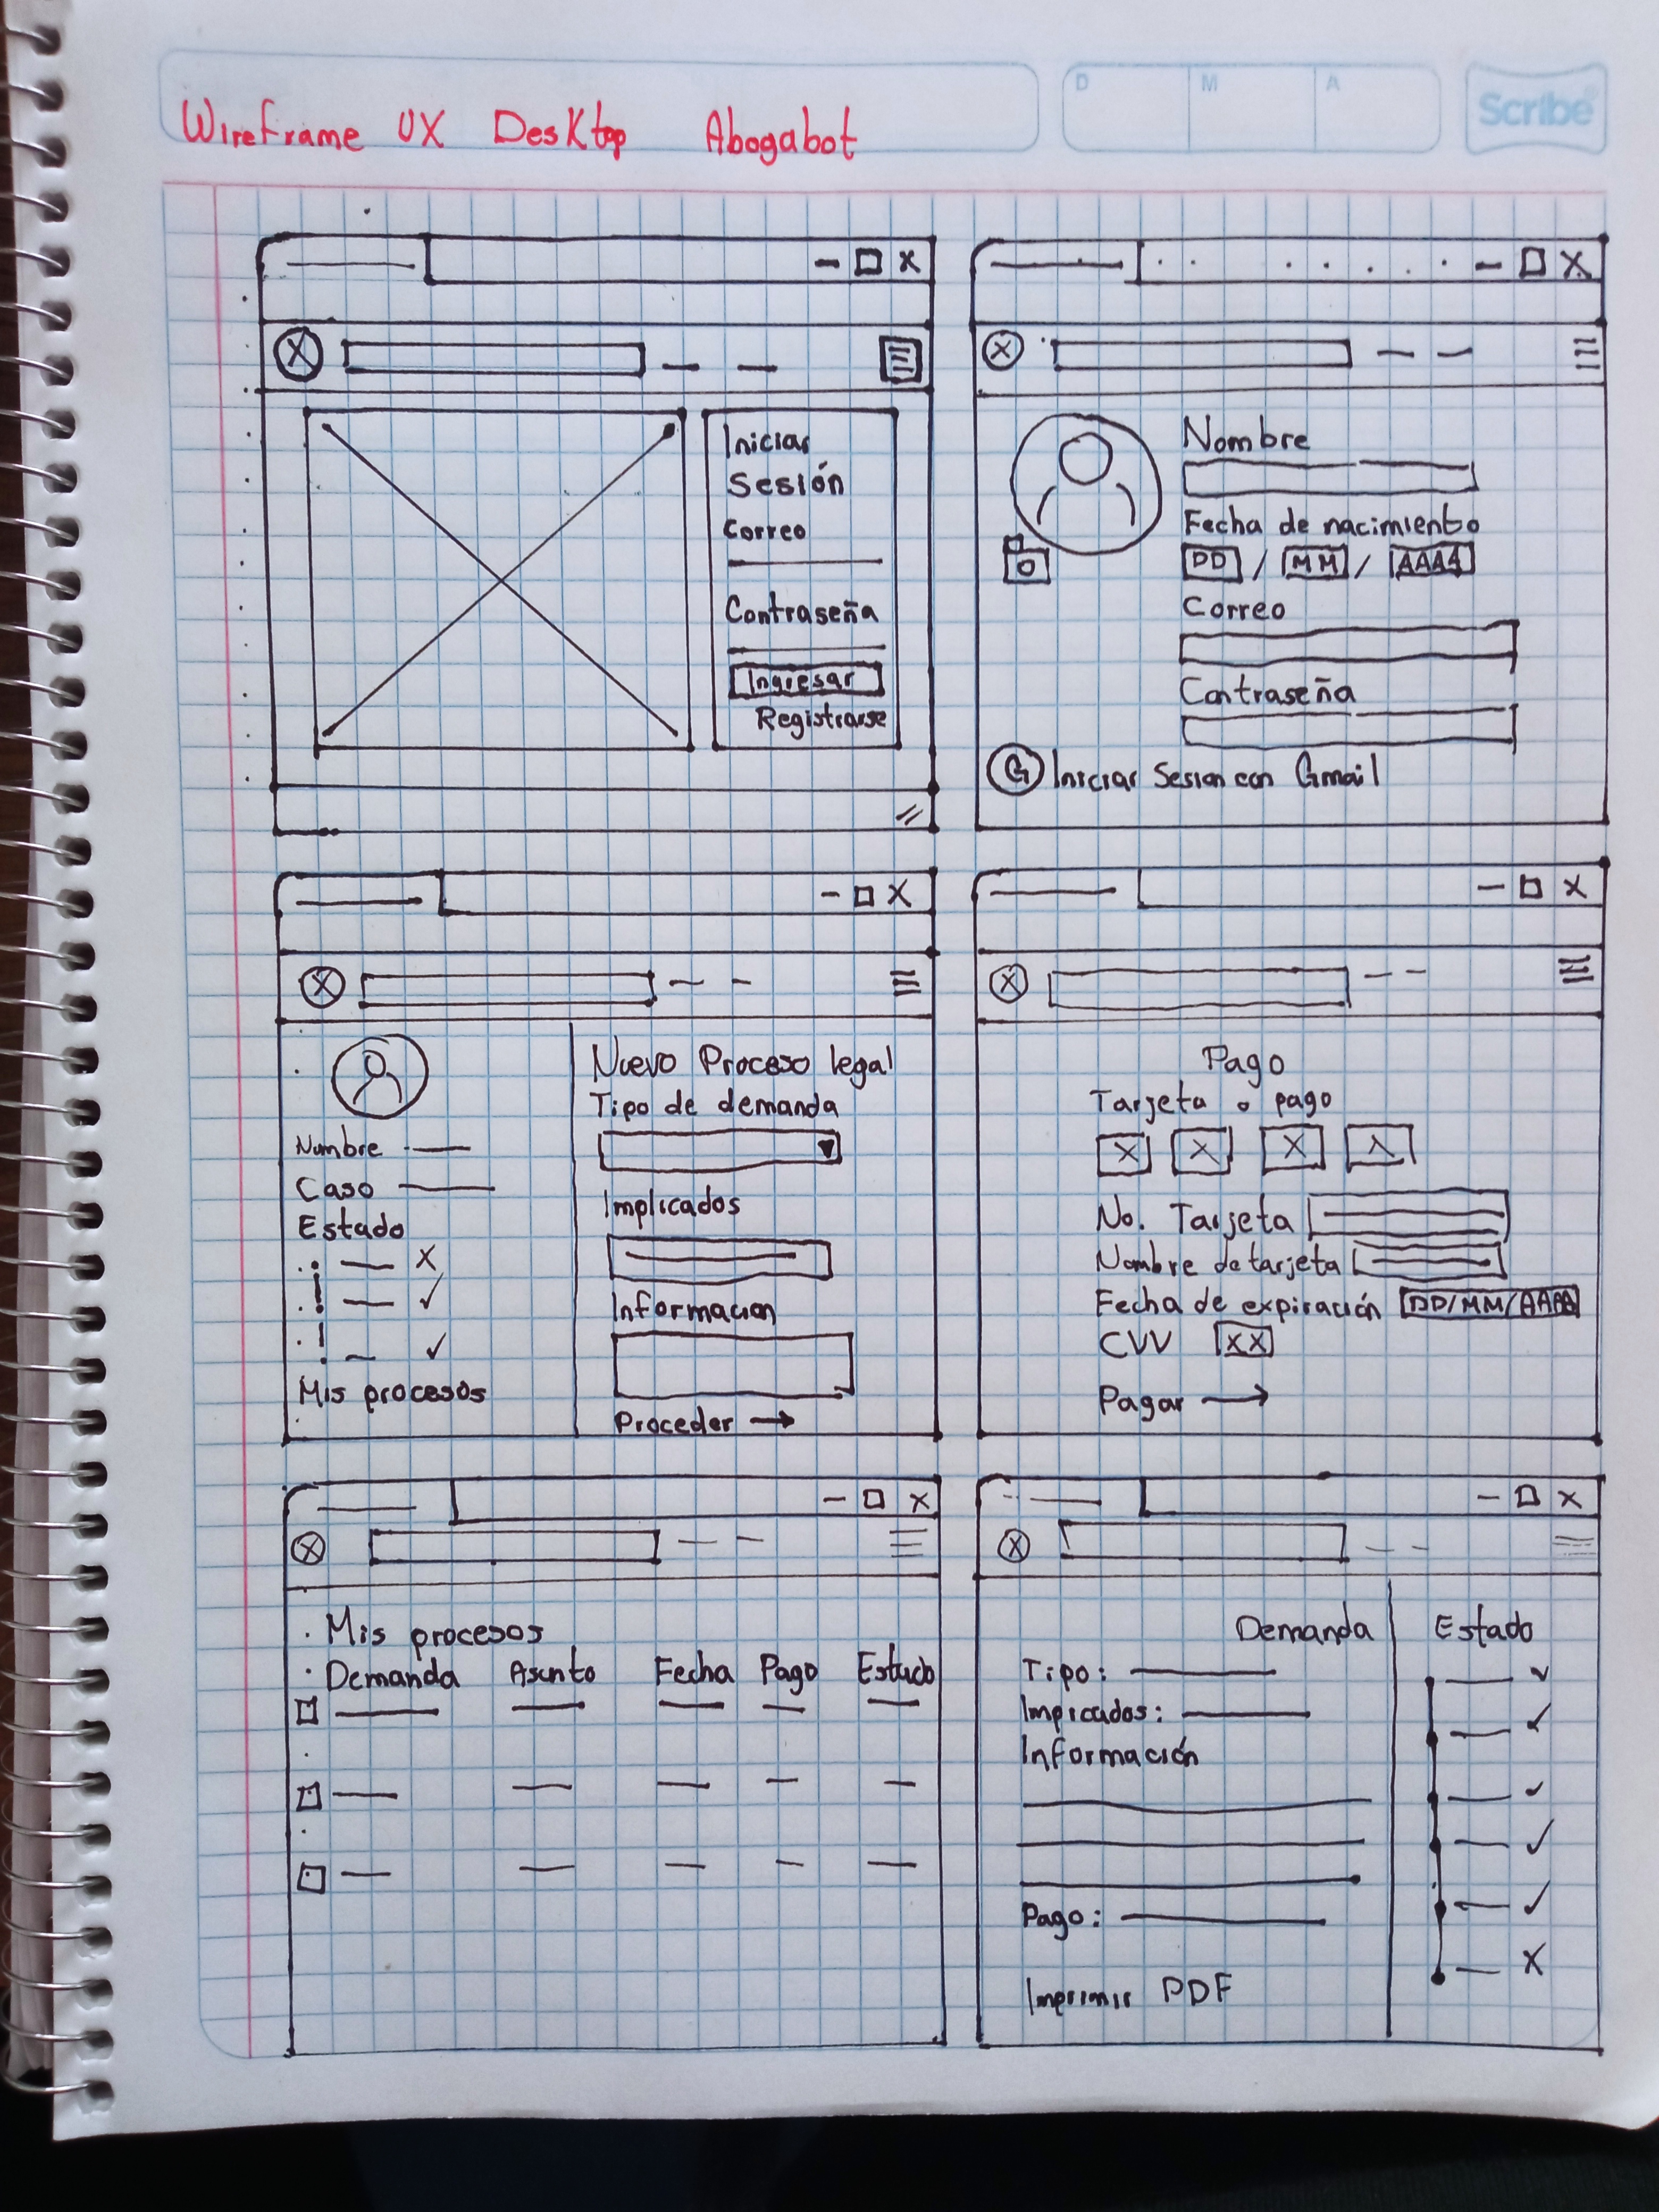 WireFrame UX Desktop Abogabot
D M A
Scribe
Iniciar
Sesión
Correo
Contraseña
Ingresar
Registrarse
Nombre
Fecha de nacimiento
DD / MM / AAAA
Correo
Contraseña
G Iniciar Sesion con Gmail
Nombre
Caso
Estado
Mis procesos
Nuevo Proceso legal
Tipo de demanda
Implicados
Informacion
Proceder →
Pago
Tarjeta o pago
No. Tarjeta
Nombre de tarjeta
Fecha de expiración DD/MM/AAAA
CVV XX
Pagar →
Mis procesos
Demanda Asunto Fecha Pago Estado
Demanda
Tipo:
Impicados:
Información
Pago:
Imprimir PDF
Estado